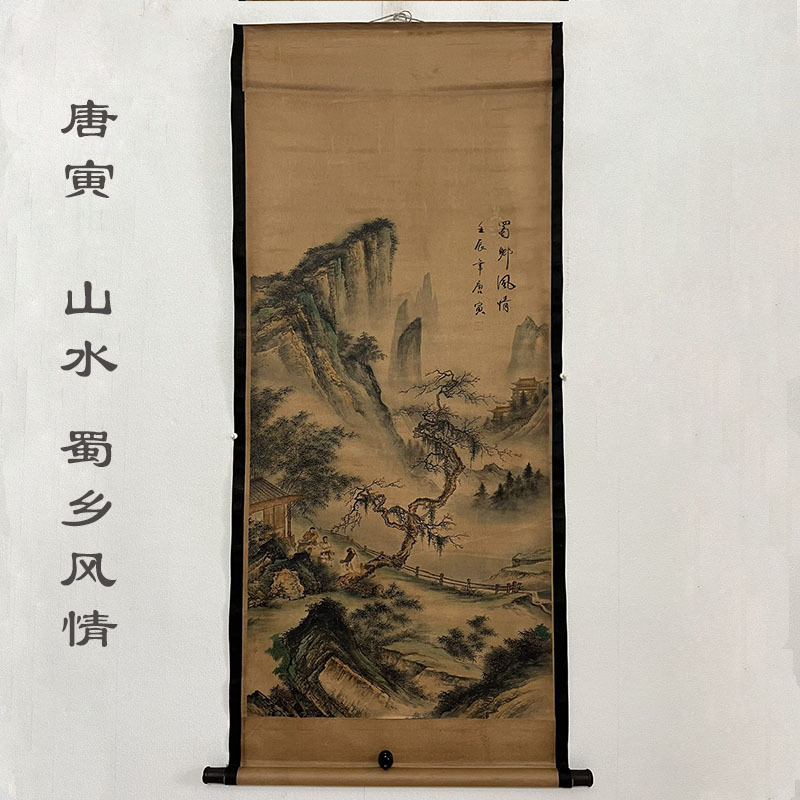 唐寅 山水 蜀乡风情
蜀鄉風情
壬辰年唐寅